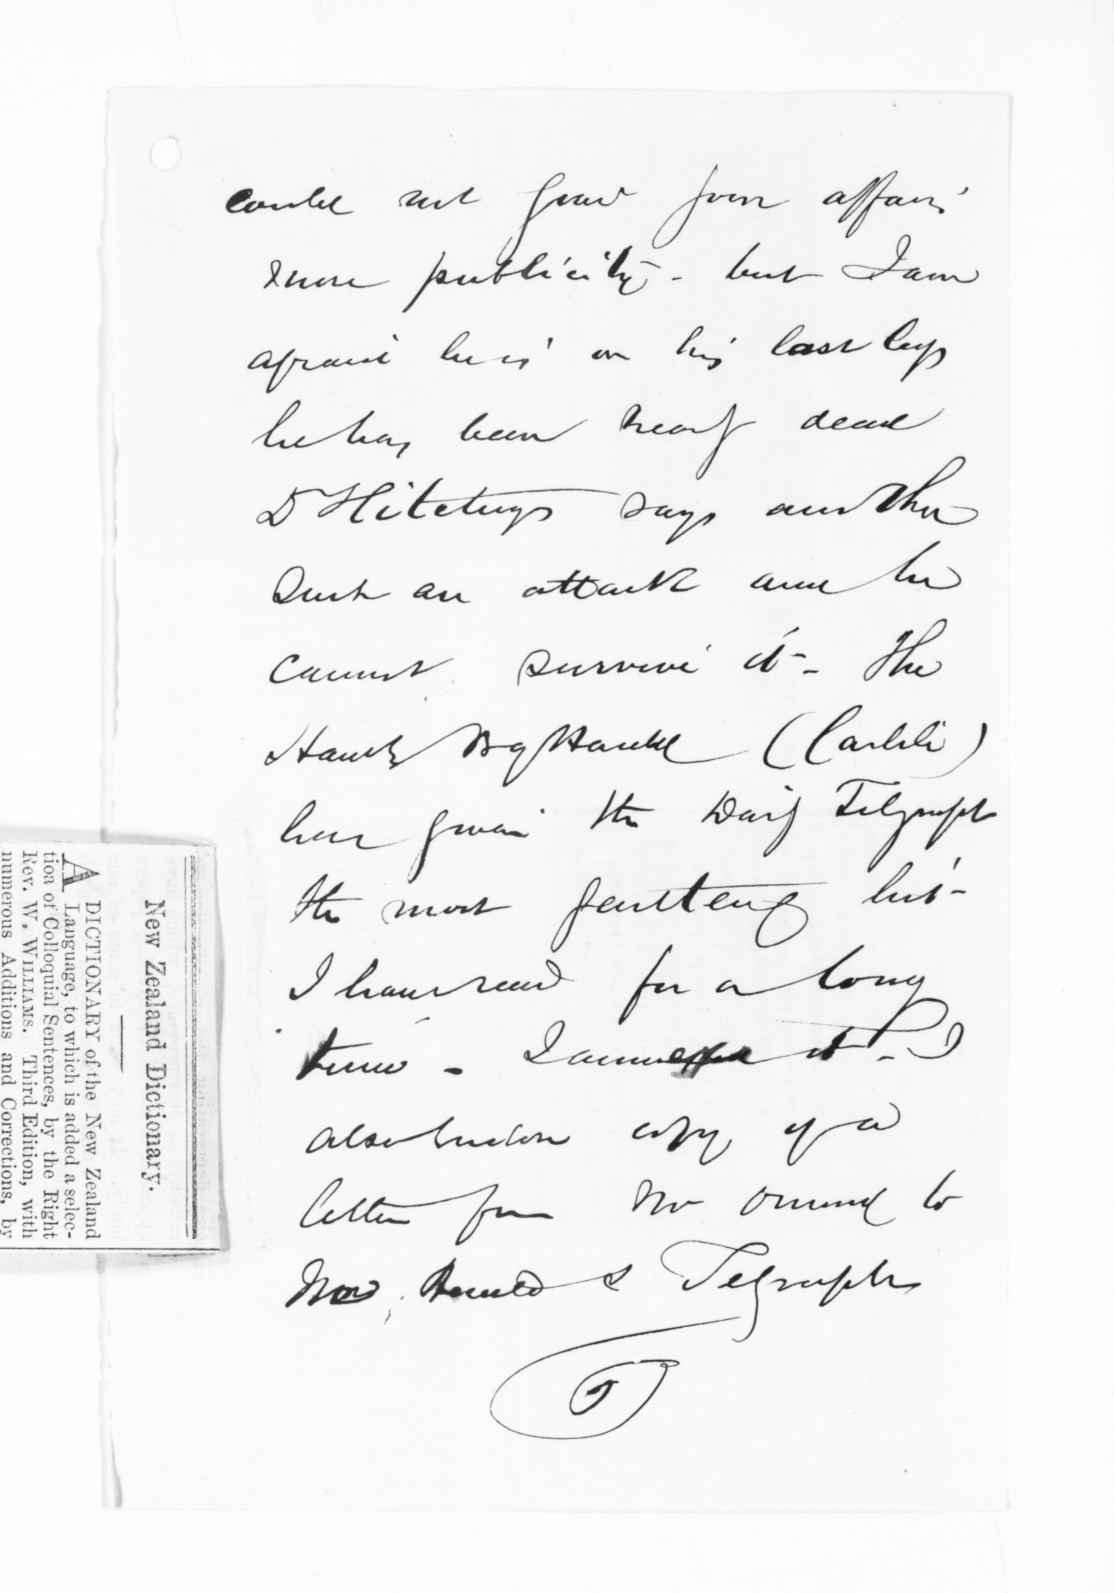 could not gain from affairs
more publicity - but I am
afraid he is on his last legs
he has been nearly dead
Dr Hitchings says another
such an attack and he
cannot survive it - The
Hawkes Bay Herald (Carlile)
have given the Daily Telegraph
the most hit -
I have read for a long
time - I it - I
also enclose copy of a
letter from Mr Ormond to
Herald & Telegraph
New Zealand Dictionary.
A DICTIONARY of the New Zealand
Language, to which is added a selec-
tion of Colloquial Sentences, by the Right
Rev. W. WILLIAMS. Third Edition, with
numerous Additions and Corrections, by